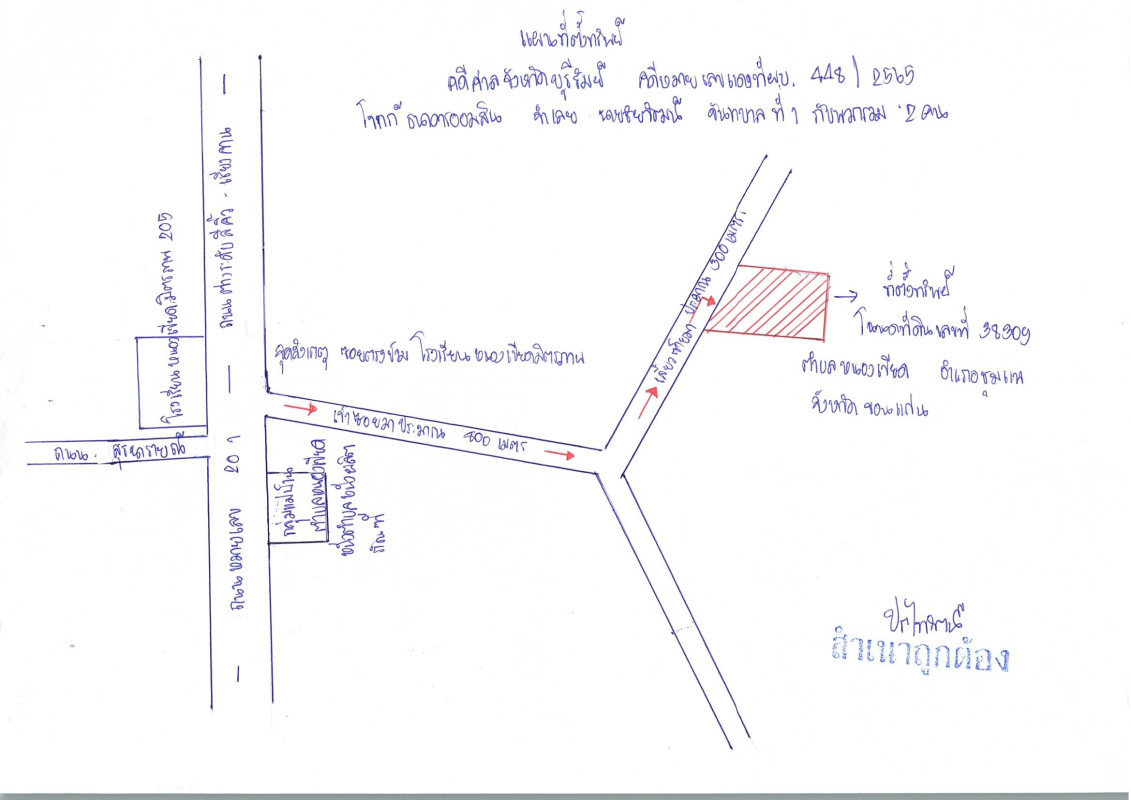 แผนที่ตั้งทรัพย์
คดีศาลจังหวัดบุรีรัมย์ คดีหมายเลขแดงที่ ผบ. 448/2565
โจทก์ ธนาคารออมสิน จำเลย นายชัยวัฒน์ ที่ 1 กับพวกรวม 2 คน
ถนนสายระดับสีคิ้ว - เชียงคาน
โรงเรียนหนองเขียดมิตรภาพ 205
จุดสังเกตุ ซอยตรงข้าม โรงเรียนหนองเขียดมิตรภาพ
เข้าซอยมาประมาณ 800 เมตร
เลี้ยวซ้ายมา ประมาณ 300 เมตร
ที่ตั้งทรัพย์
โฉนดที่ดินเลขที่ 38309
ตำบลหนองเขียด อำเภอชุมแพ
จังหวัดขอนแก่น
ถนน
ถนนหมายเลข 201
กลุ่มแม่บ้าน
ตำบลหนองเขียด
หนึ่งตำบลหนึ่งผลิต
ภัณฑ์
สำเนาถูกต้อง